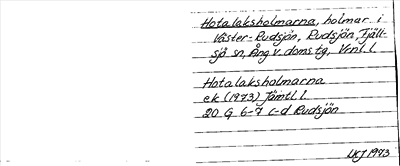 Hotalaksholmarna, holmar i
Väster-Rudsjön, Rudsjön, Fjäll-
sjö sn, Ång v. domstg, Vrnl. l.
Hotalaksholmarna
ek (1973) Jämtl. l
20 G 6-7 c-d Rudsjön
1973